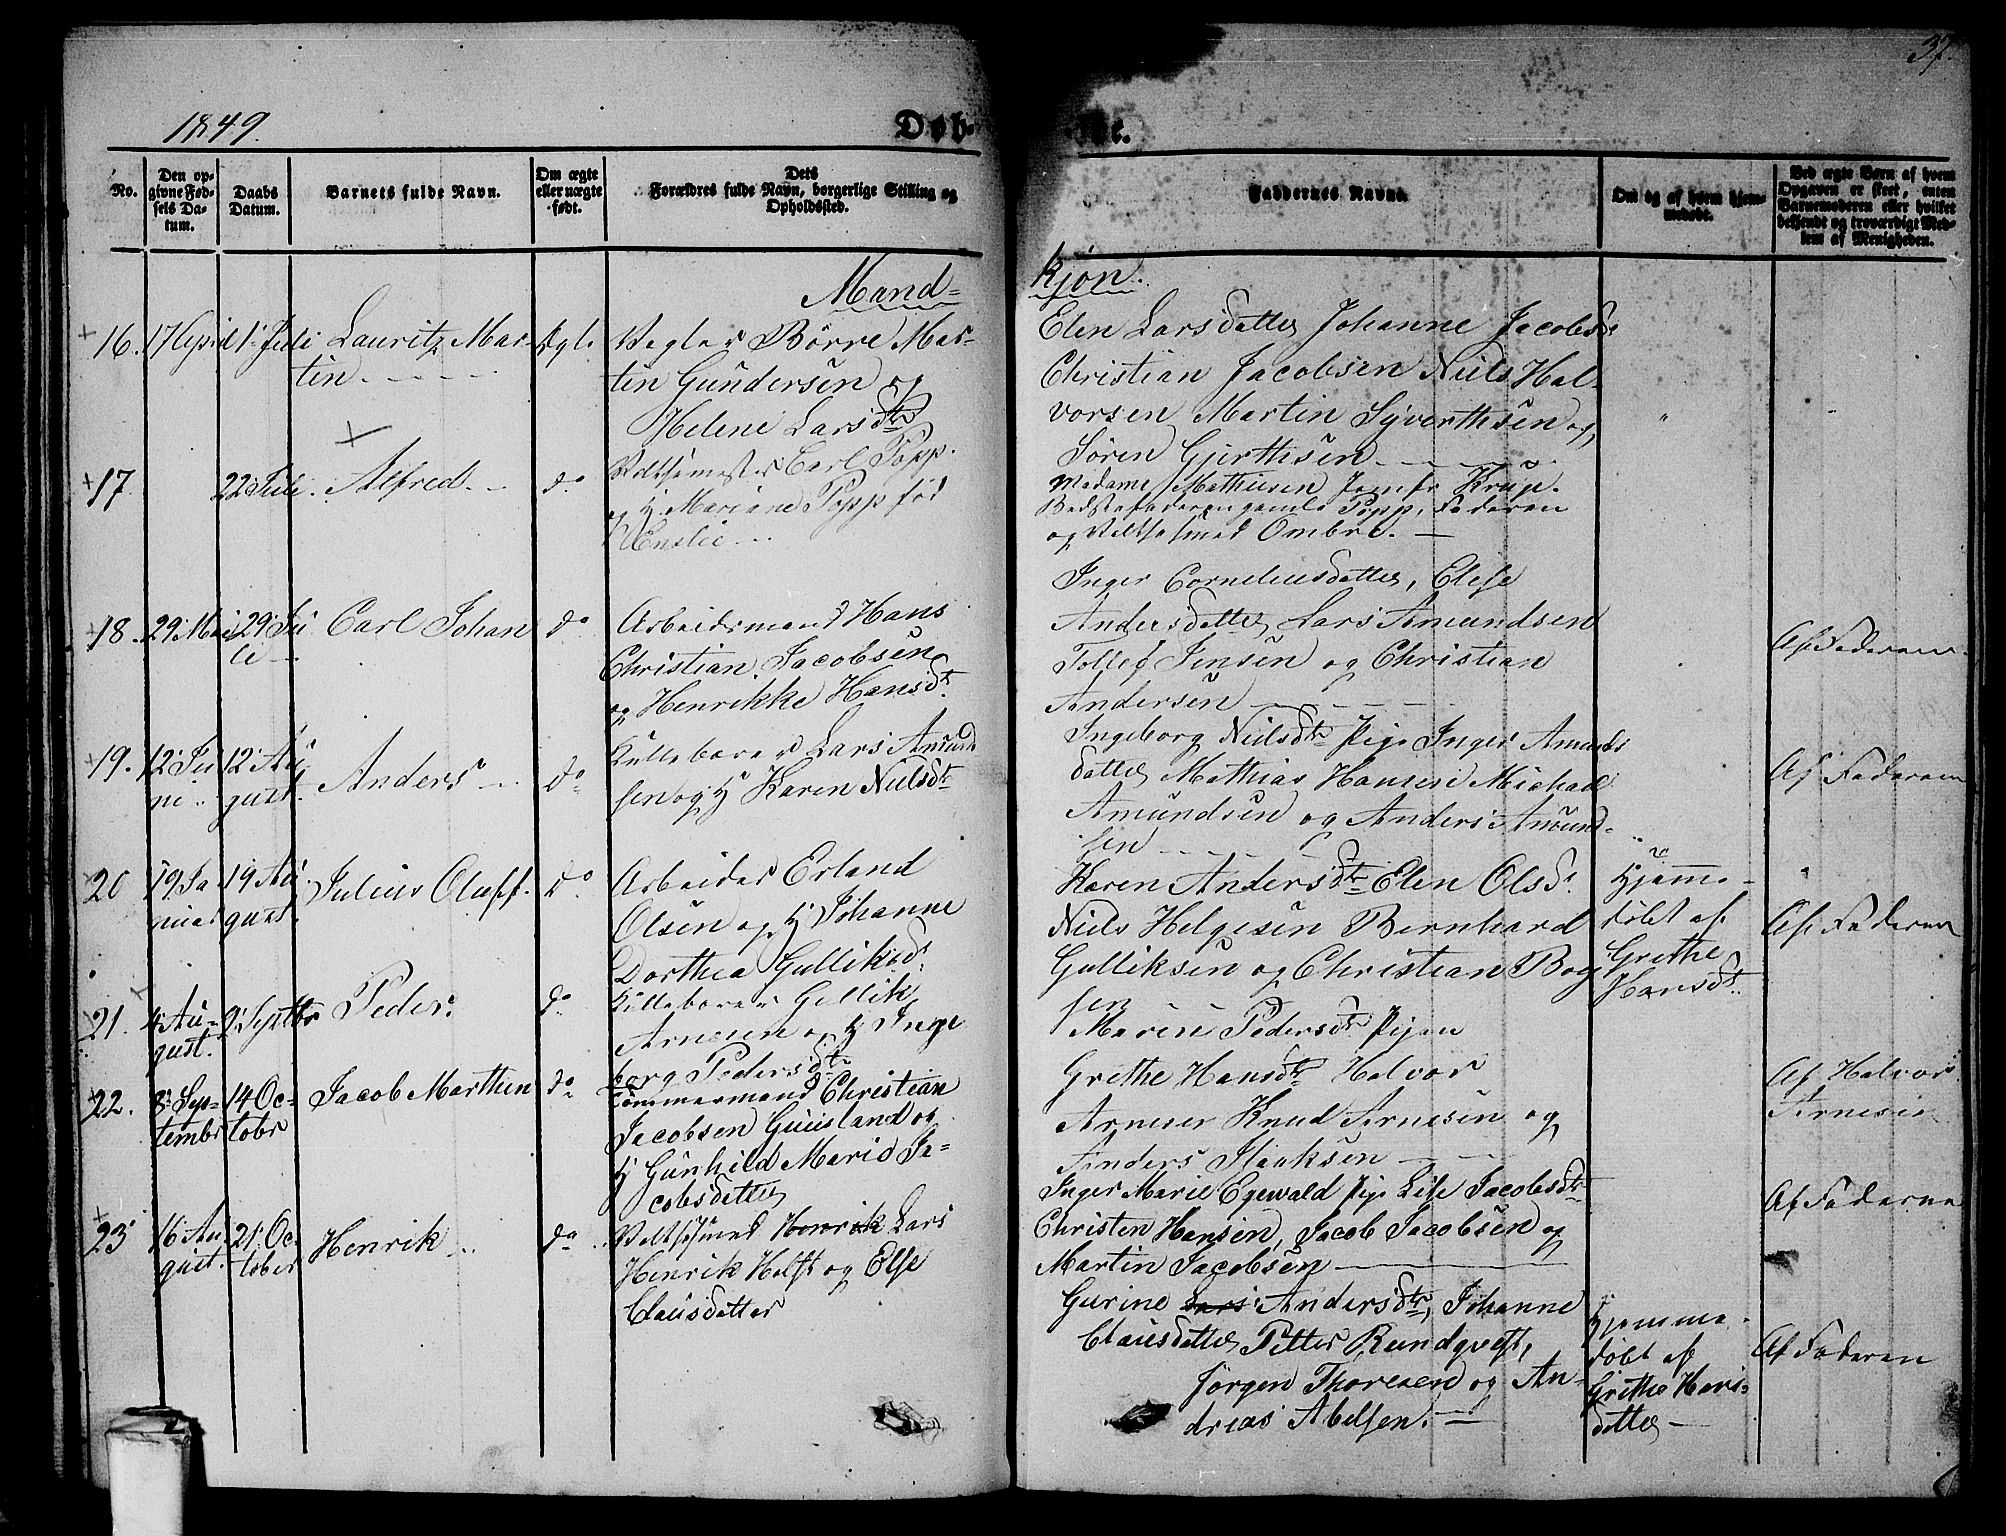 37.
1849.
Døb-
te.
No.
Den op-
givne Fød-
sels Da-
tum.
Daabs
Datum.
Barnets fulde Navn.
Om ægte
eller uægte
født.
Dets
Forældres fulde Navn, borgerlige Stilling og
Opholdssted.
Faddernes Navne.
Om og af hvem hjem-
medøbt.
Ved ægte Børn af hvem
Opgaven er skeet, enten
Barnemoderen eller hvilket
bekjendt og troværdigt Med-
lem af Menigheden.
Mand=
kjøn.
16. 1' Juli Lauritz Mar-
tin
Børre Mar-
tin Gundersen og
Helene Larsdtr
Elen Larsdatter Johanne Jacobsdr
Christian Jacobsen Niels Hal-
vorsen Martin Syverthsen og
Søren Gjerthsen
17 22 Juli Alfred do
Carl Popp
og H. Mariane Popp fød
Enslie
Madame Mathiesen Jomfr Krup.
gamle Popp, Faderen
og Ombre.
18. 29 Mai 29 Ju
li
Carl Johan do
Arbeidsmand Hans
Christian Jacobsen
og Henrikke Hansdtr
Inger Corneliusdatter, Elise
Andersdatter Lars Amundsen
Tollef Jensen og Christian
Andersen
Af Faderen
19. 12 Ju
ni
12 Au
gust.
Anders do
Lars Amund
sen og H Karen Nielsdtr
Ingeborg Nielsdtr Pige Inger Amunds
datter Mathias Hansen Michael
Amundsen og Anders Amund-
sen
Af Faderen
20 19 Ja
nuar
19 Au
gust.
Julius Oluff. do
Arbeider Erland
Olsen og H Johanne
Dorthea Gulliksd
Karen Andersdtr Elen Olsdr
Niels Helgesen Bernhard
Gulliksen og Christian Boy
sen
Hjemme-
døbt af
Grethe
Hansdtr
Af Faderen
21. 4 Au-
gust.
9 Septbr Peder. do
Gullik
Arnesen og H Inge
borg Pedersdtr
Maren Pedersdtr Pigen
Grethe Hansdtr Halvor
Arnesen Knud Arnesen og
Anders Isaaksen
Af Halvor
Arnesen
22. 8 Sep-
tembr
14 Oc-
tobr
Jacob Marthin do
Tømmermand Christian
Jacobsen Guusland og
H Gunhild Marie Ja-
cobsdatter
Inger Marie Egewald Pige Lise Jacobsdtr
Christen Hansen, Jacob Jacobsen og
Martin Jacobsen
Af Faderen
23 16 Au
gust.
21 Oc-
tober
Henrik do
Henrik Lars
Henrik Holst og Else
Clausdatter
Gurine Lars Andersdtr, Johanne
Clausdatter Petter Rundqvest,
Jørgen Thoresen og An-
dreas Abelsen.
Hjemme-
døbt af
Grethe Hans-
datter
Af Faderen